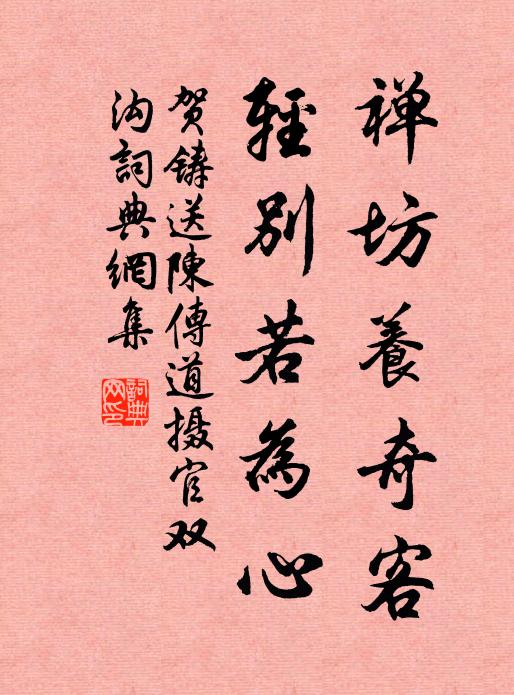 禅坊養奇客
輕別若為心
贺鑄送陳傳道摄官双
沟詞典網集
詞典
网印